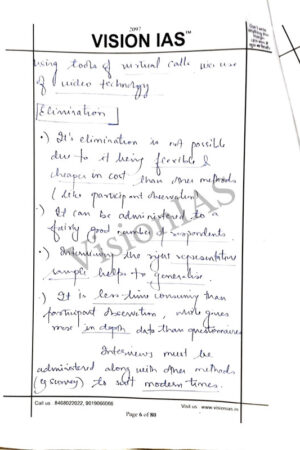 2097
VISION IAS™
Don't write
anything this
margin
using tools of virtual calls use
of video technology
Elimination
•) It's elimination is not possible
due to it being flexible &
cheaper in cost than other methods
(like participant observation)
•) It can be administered to a
fairly good number of respondents.
•) Interviewing the right representative
sample helps to generalise.
•) It is less-time consuming than
participant observation, while gives
more in depth data than questionnaires
Interviews must be
administered along with other methods
(eg survey) to suit modern times.
VisionIAS
Call us : 8468022022, 9019066066
Visit us : www.visionias.in
Page 6 of 80